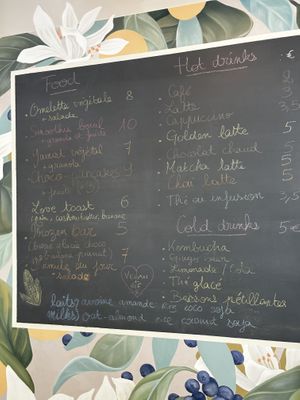 Food
. Omelette végétale 8
+ salade
. Smoothie bowl 10
+ granola & fruits
. Yaourt végétal 7
+ granola
. Choco-pancakes 9
+ fruits (x3)
. Love toast 6
. Frozen bar 5
(barre glacée choco
7
Hot drinks €
. Café 2
. Latte 3,
. Cappuccino 3,5
. Golden latte 5
. Chocolat chaud 5
. Matcha latte 5
. Chai latte 5
. Thé ou infusion 3,5
Cold drinks 5€
. Kombucha
. Ginger beer
. Limonade / Cola
. Thé glacé
. Boissons pétillantes
Vegan
laits avoine amande riz coco soja
milks oat almond rice coconut soya